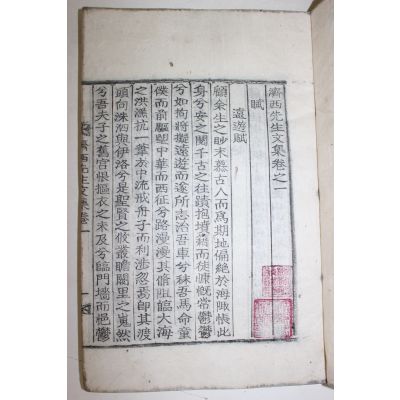 濟西先生文集卷之一
賦
遠遊賦
顧余生之眇末慕古人而爲期地偏絶於海陬悵此
身兮安之閱千古之往蹟抱墳籍而徒慷慨常鬱鬱
兮如拘將擬遠遊而遂所志治吾車兮秣吾馬命童
僕而前驅望中華而西征兮路漫漫其脩阻臨大海
之洪瀁杭一葦亦中流戒舟子而利涉忽焉卽其渡
頭向洙泗與伊洛兮是聖賢之攸叢瞻闕里之嵬然
兮吾夫子之舊宮悵摳衣之未及兮臨門墻而悒鬱
濟西先生文集卷一
一